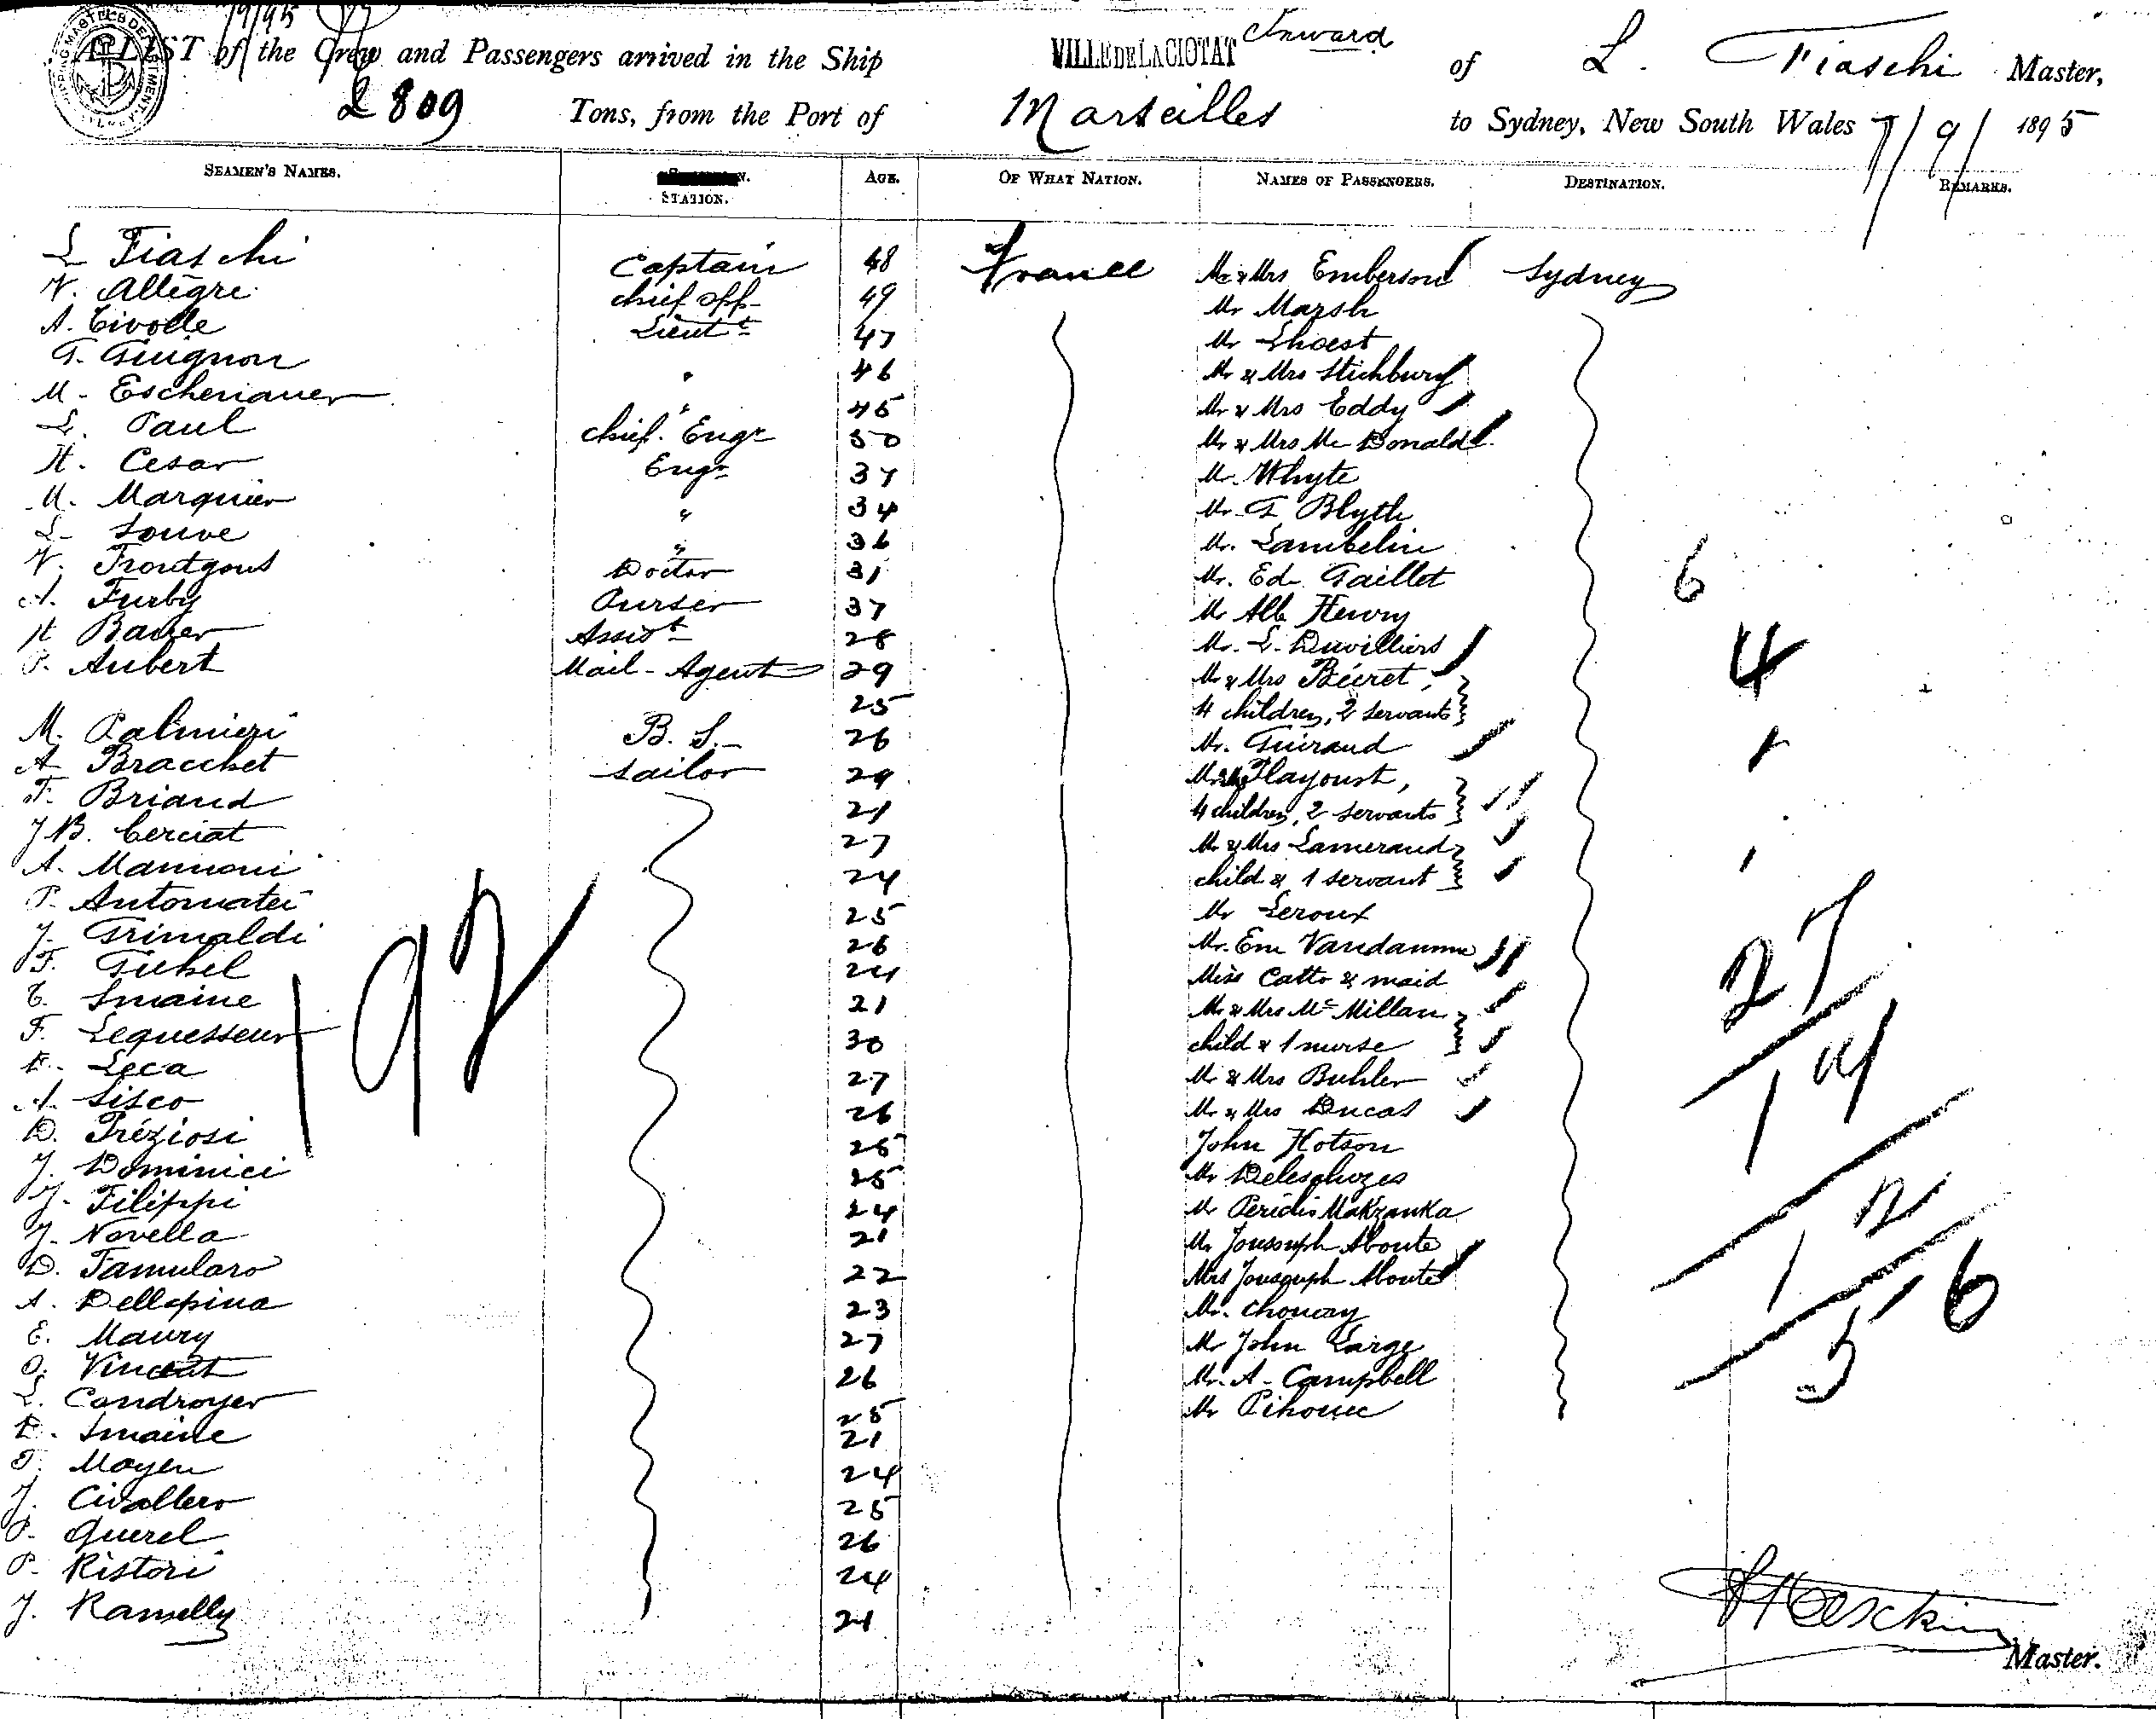 7/9/95
A LIST of the Crew and Passengers arrived in the Ship VILLE DE LA CIOTAT Inward of L. Fiaschi Master,
2809 Tons, from the Port of Marseilles to Sydney, New South Wales 7/9/ 1895
SEAMEN'S NAMES. STATION. AGE. OF WHAT NATION. NAMES OF PASSENGERS. DESTINATION. REMARKS.
L Fiaschi Captain 48 France Mr & Mrs Emberson Sydney
V. Allègre chief off. 49 Mr Marsh
A. Civolle Lieut t 47 Mr Lhoest
G. Guignon " 46 Mr & Mrs Stichbury
M. Escherianer " 45 Mr & Mrs Eddy
L. Paul chief. Engr 50 Mr & Mrs Mc Donald
H. Cesar Engr 37 Mr. Whyte
M. Marquier " 34 Mr. G Blyth
L. Souve " 36 Mr. Lambelin
V. Frontgous Doctor 31 Mr. Ed. Gaillet 6
A. Furby Purser 37 Mr Alb Henry
H Bauer Assist 28 Mr. L. Duvilliers 4
P. Aubert Mail-Agent 29 Mr & Mrs Bécret,
25 4 children, 2 servants
M. Palmieri B. S. 26 Mr. Guiraud 1
A Bracchet Sailor 29 Playoust,
F. Briand 21 4 children, 2 servants
J.B. Cerciat 27 Mr & Mrs Lamerand 1
A. Mannoni 24 child & 1 servant
P. Antomatei 25 Mr Leroux
J. Grimaldi 26 Mr. Em Vandamme 27
F. Gickel 24 Miss Catto & maid
C. Smaine 21 Mr & Mrs Mc Millan
F. Lequesseur 30 child & 1 nurse 14
E. Leca 27 Mr & Mrs Buhler
A. Sisco 26 Mr & Mrs Ducas
192
D. Préziosi 25 John Hotson
J. Dominici 25 Mr Deleschuzes
J. Filippi 24 Mr Peridis Makzanka 12
J. Novella 21 Mr Jousouph Aboute
D. Tamularo 22 Mrs Jousouph Aboute
A. Dellepina 23 Mr. Choucay 56
E. Maury 27 Mr John Large
O. Vincent 26 Mr. A. Campbell
L. Candroyer 25 Mr Pihouee
E. Smaine 21
F. Moyen 24
J. Civallero 25
P. Querel 26
P. Ristori 24
J. Ramelly 21
Master.